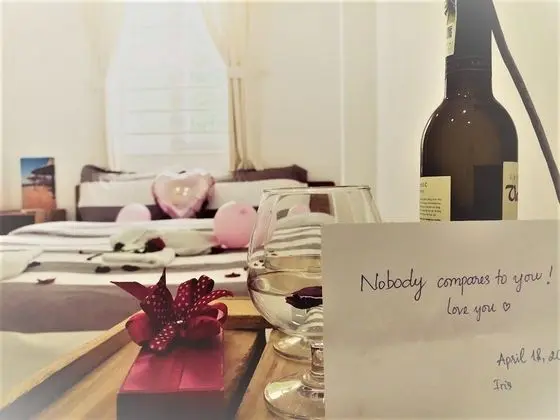 Nobody compares to you!
love you ♡
April 18, 20
Iris